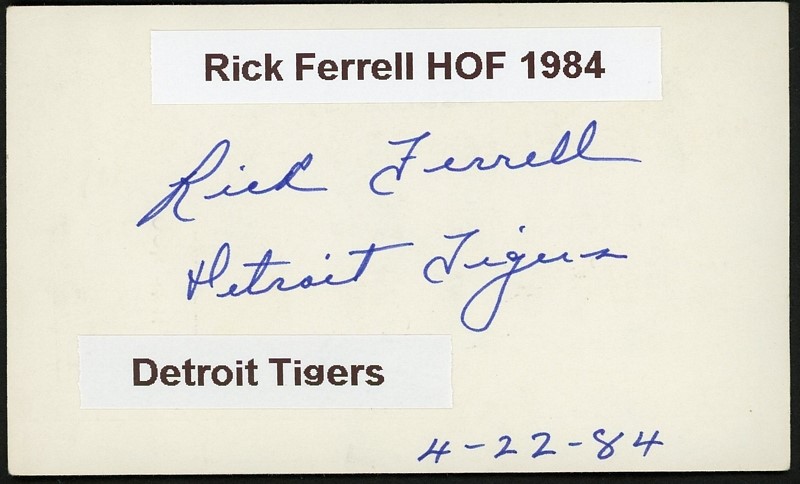 Rick Ferrell HOF 1984
Rick Ferrell
Detroit Tigers
Detroit Tigers
4-22-84